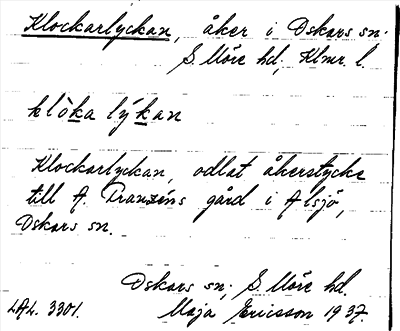 Klockarlyckan, åker i Oskars sn.
S. Möre hd, Klmr. l.
klòka lýkan
Klockarlyckan, odlat åkerstycke
till A. Franzéns gård i Alsjö,
Oskars sn.
Oskars sn, S. Möre hd.
LAL. 3301. Maja Ericsson 1937.